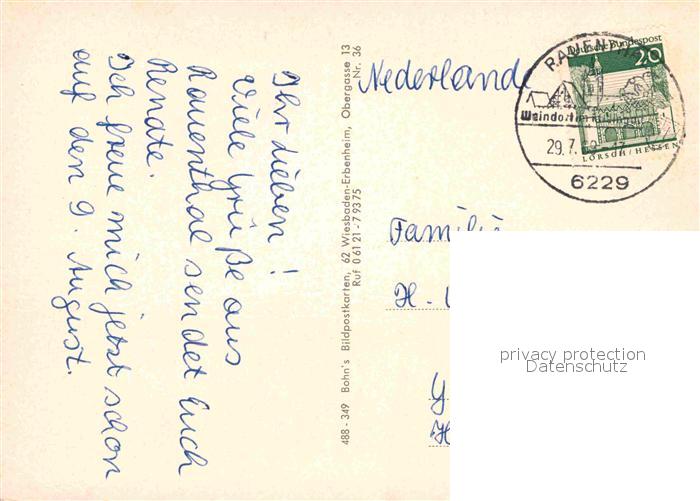 Ihr Lieben!
Viele Grüße aus
Rauenthal sendet Euch
Renate.
Ich freue mich jetzt schon
auf den 9. August.
488 - 349 Bohn's Bildpostkarten, 62 Wiesbaden-Erbenheim, Obergasse 13
Ruf 0 61 21 - 7 93 75
Nr. 36
Nederland
Deutsche Bundespost
20
LORSCH/HESSEN
29.7.
6229
Familie
H.
privacy protection
Datenschutz